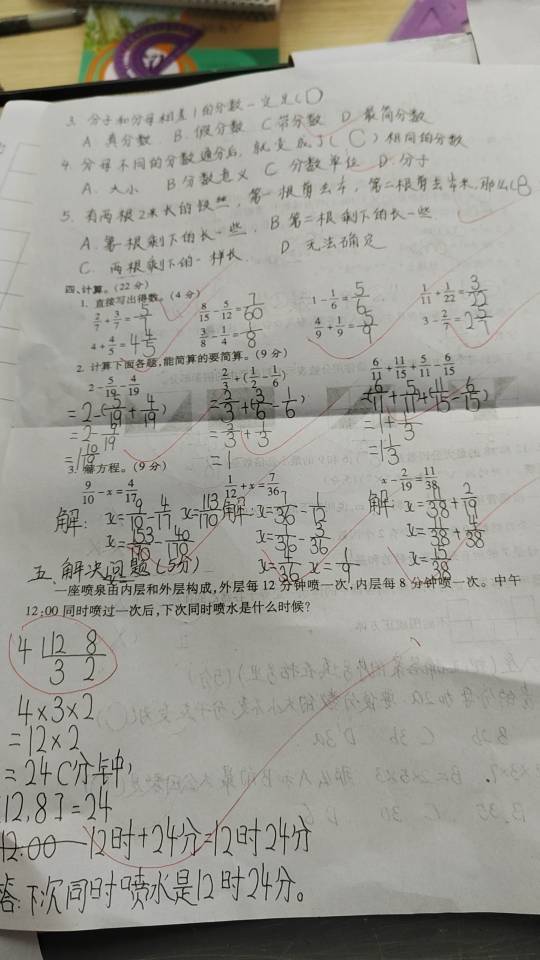 3. 分子和分母相差1的分数一定是(D)
A. 真分数 B. 假分数 C 带分数 D. 最简分数
4. 分母不同的分数通分后, 就变成了(C)相同的分数
A. 大小 B 分数意义 C 分数单位 D. 分子
5. 有两根2米长的铁丝, 第一根剪去 第二根剪去 米, 那么(B
A. 第一根剩下的长一些. B 第二根剩下的长一些
C. 两根剩下的一样长. D. 无法确定
四、计算。(22分)
1. 直接写出得数。(4分)
2/7+3/7=5/7 8/15-5/12=7/60 1-1/6=5/6 1/11+1/22=3/22
4+4/5=4 4/5 3/8-1/4=1/8 4/9+1/9=5/9 3-2/7=2 5/7
2. 计算下面各题,能简算的要简算。(9分)
2-5/19-4/19 2/3+(1/2-1/6) 6/11+11/15+5/11-6/15
=2-(5/19+4/19) =2/3+(3/6-1/6) =6/11+5/11+(11/15-6/15)
=2-9/19 =2/3+1/3 =1+1/3
=1 10/19 =1 =1 1/3
3. 解方程。(9分)
9/10-x=4/17 1/12+x=7/36 x-2/19=11/38
解: x=9/10-4/17 x=113/170 解: x=7/36-1/12 解: x=11/38+2/19
x=153/170-40/170 x=7/36-3/36 x=11/38+4/38
x=4/36 x=1/9 x=15/38
五、解决问题(5分)
一座喷泉由内层和外层构成,外层每12分钟喷一次,内层每8分钟喷一次。中午
12:00同时喷过一次后,下次同时喷水是什么时候?
4 12 8
3 2
4×3×2
=12×2
=24(分钟)
[12,8]=24
12:00 12时+24分=12时24分
答:下次同时喷水是12时24分。